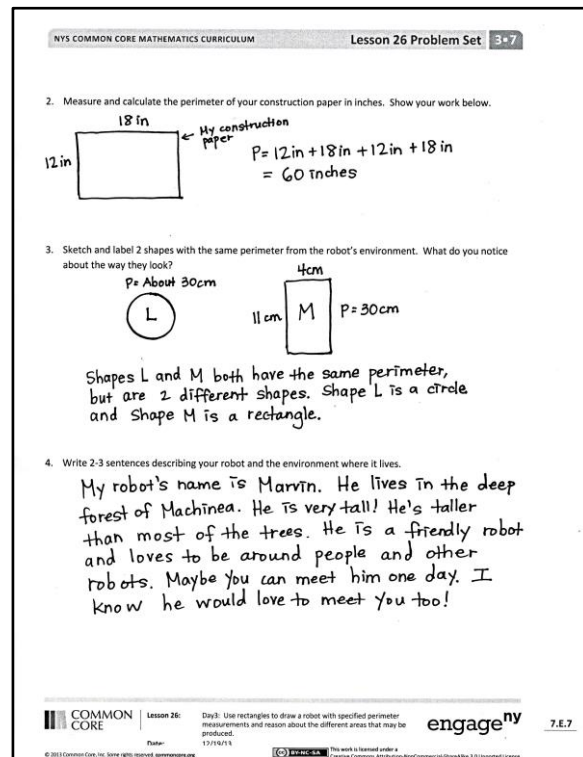 NYS COMMON CORE MATHEMATICS CURRICULUM Lesson 26 Problem Set 3•7
2. Measure and calculate the perimeter of your construction paper in inches. Show your work below.
18 in
My construction
paper
12 in
P= 12in +18in +12in +18 in
= 60 inches
3. Sketch and label 2 shapes with the same perimeter from the robot's environment. What do you notice
about the way they look?
P= About 30cm
L
4cm
11 cm
M
P= 30cm
Shapes L and M both have the same perimeter,
but are 2 different shapes. Shape L is a circle
and Shape M is a rectangle.
4. Write 2-3 sentences describing your robot and the environment where it lives.
My robot's name is Marvin. He lives in the deep
forest of Machinea. He is very tall! He's taller
than most of the trees. He is a friendly robot
and loves to be around people and other
robots. Maybe you can meet him one day. I
know he would love to meet you too!
COMMON
CORE
Lesson 26:
Day3: Use rectangles to draw a robot with specified perimeter
measurements and reason about the different areas that may be
produced.
Date: 12/19/13
engage ny
7.E.7
© 2013 Common Core, Inc. Some rights reserved. commoncore.org
CC BY-NC-SA
This work is licensed under a
Creative Commons Attribution-NonCommercial-ShareAlike 3.0 Unported License